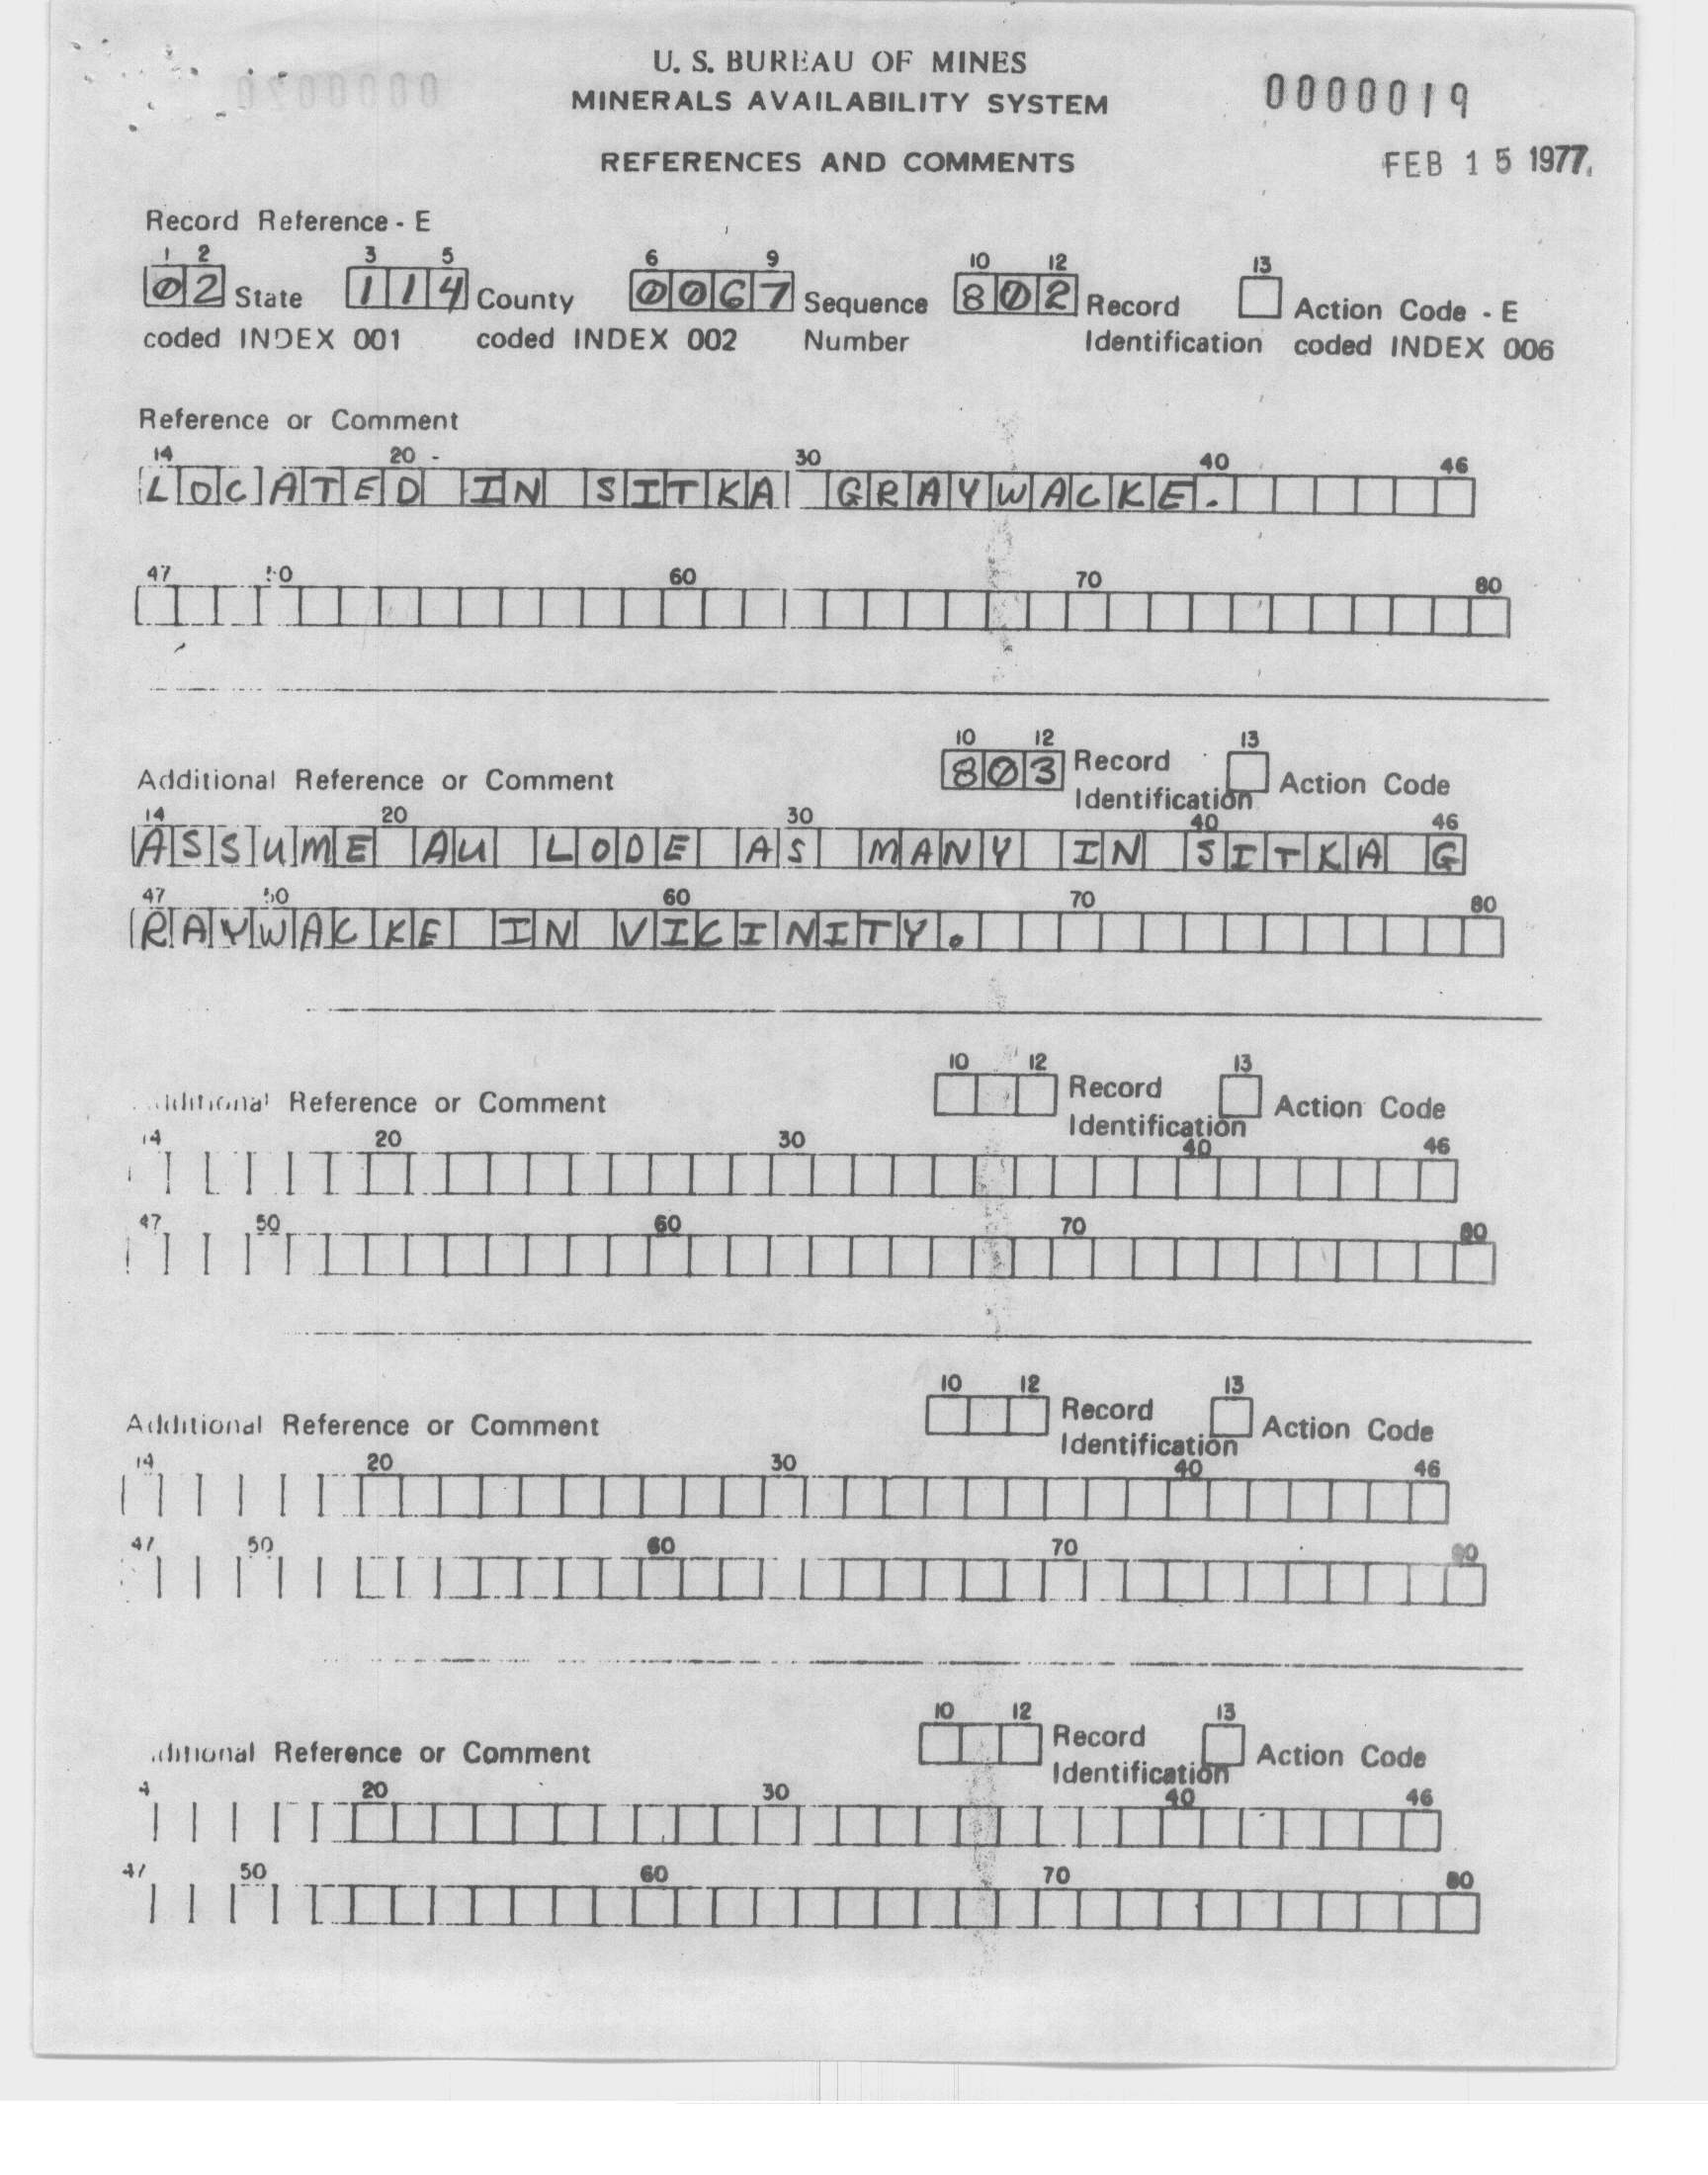 U. S. BUREAU OF MINES
0000020
MINERALS AVAILABILITY SYSTEM
0000019
REFERENCES AND COMMENTS
FEB 15 1977
Record Reference - E
1 2 3 5 6 9 10 12 13
02 State 114 County 0067 Sequence 802 Record Action Code - E
coded INDEX 001 coded INDEX 002 Number Identification coded INDEX 006
Reference or Comment
14 20 30 40 46
LOCATED IN SITKA GRAYWACKE.
47 50 60 70 80
10 12 13
Additional Reference or Comment 803 Record Identification Action Code
14 20 30 40 46
ASSUME AU LODE AS MANY IN SITKA G
47 50 60 70 80
RAYWACKE IN VICINITY.
10 12 13
Additional Reference or Comment Record Identification Action Code
14 20 30 40 46
47 50 60 70 80
10 12 13
Additional Reference or Comment Record Identification Action Code
14 20 30 40 46
47 50 60 70 80
10 12 13
ditional Reference or Comment Record Identification Action Code
4 20 30 40 46
47 50 60 70 80